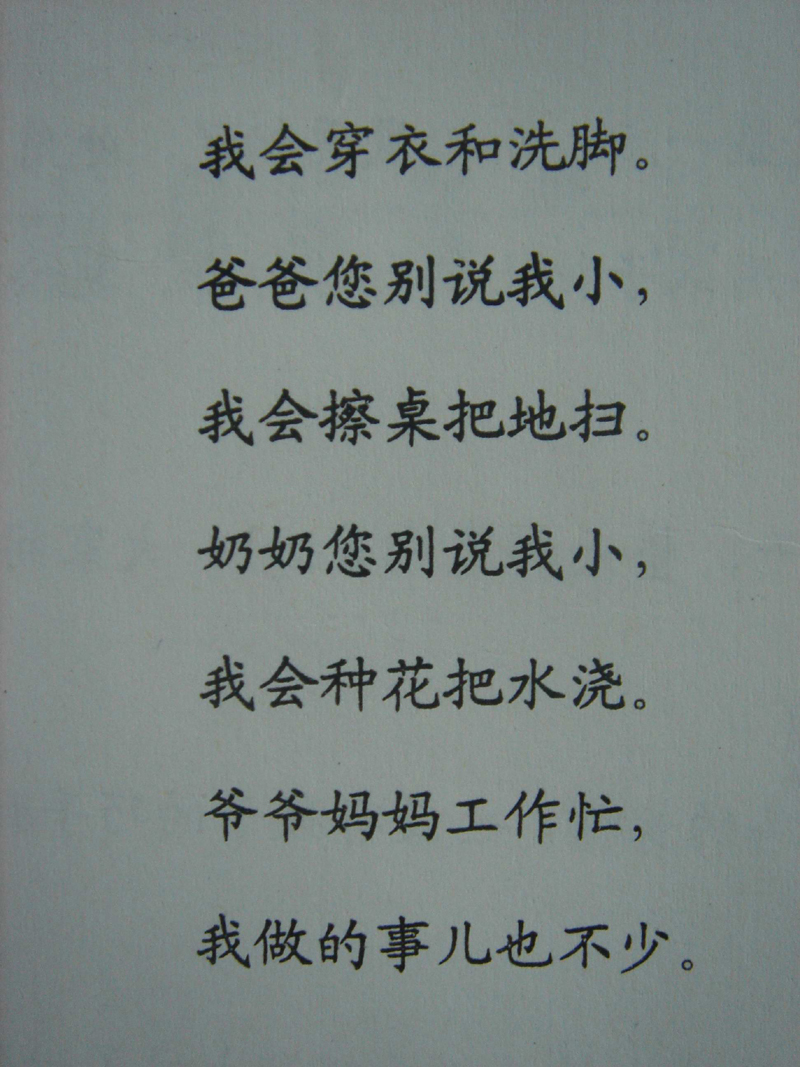 我会穿衣和洗脚。
爸爸您别说我小，
我会擦桌把地扫。
奶奶您别说我小，
我会种花把水浇。
爷爷妈妈工作忙，
我做的事儿也不少。